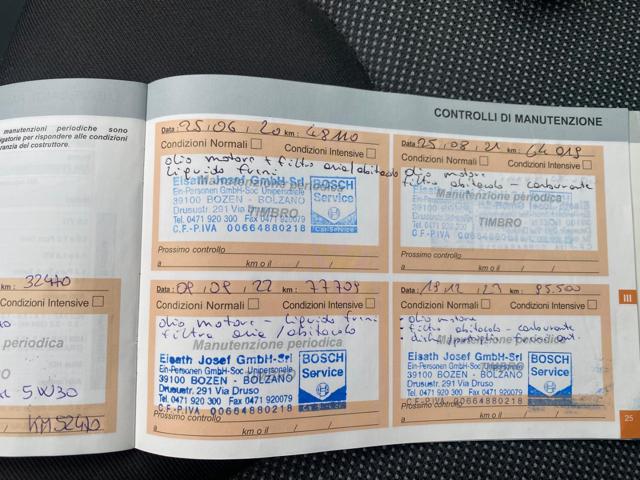 manutenzioni periodiche sono
igatorie per rispondere alle condizioni
ranzia del costruttore.
km: 32470
Condizioni Intensive
periodica
5W30
KM 52470
CONTROLLI DI MANUTENZIONE
Data: 25.06.20 km: 48110
Condizioni Normali Condizioni Intensive
olio motore + filtro aria/abitacolo
liquido freni
Manutenzione periodica
TIMBRO
Eisath Josef GmbH-Srl
Ein-Personen GmbH-Soc. Unipersonale
39100 BOZEN - BOLZANO
Drususstr. 291 Via Druso
Tel. 0471 920 300 Fax 0471 920079
C.F.-P.IVA 00664880218
BOSCH
Service
Car Service
Prossimo controllo
a km o il / /
Data: 25.08.21 km: 64019
Condizioni Normali Condizioni Intensive
olio motore
filtro abitacolo - carburante
Manutenzione periodica
TIMBRO
Prossimo controllo
a km o il / /
09.09.22 km: 77709
Condizioni Normali Condizioni Intensive
olio motore - liquido freni
filtro aria/abitacolo
Manutenzione periodica
Eisath Josef GmbH-Srl
Ein-Personen GmbH-Soc. Unipersonale
39100 BOZEN - BOLZANO
Drususstr. 291 Via Druso
Tel. 0471 920 300 Fax 0471 920079
C.F.-P.IVA 00664880218
BOSCH
Service
Prossimo controllo
a km o il / /
km: 95.500
Condizioni Normali Condizioni Intensive
- olio motore
- filtro abitacolo - carburante
- dischi/pastiglie freno ant.
Manutenzione periodica
TIMBRO
Eisath Josef GmbH-Srl
Ein-Personen GmbH-Soc. Unipersonale
39100 BOZEN - BOLZANO
Drususstr. 291 Via Druso
Tel. 0471 920 300 Fax 0471 920079
C.F.-P.IVA 00664880218
BOSCH
Service
Prossimo controllo
a km o il / /
III
25